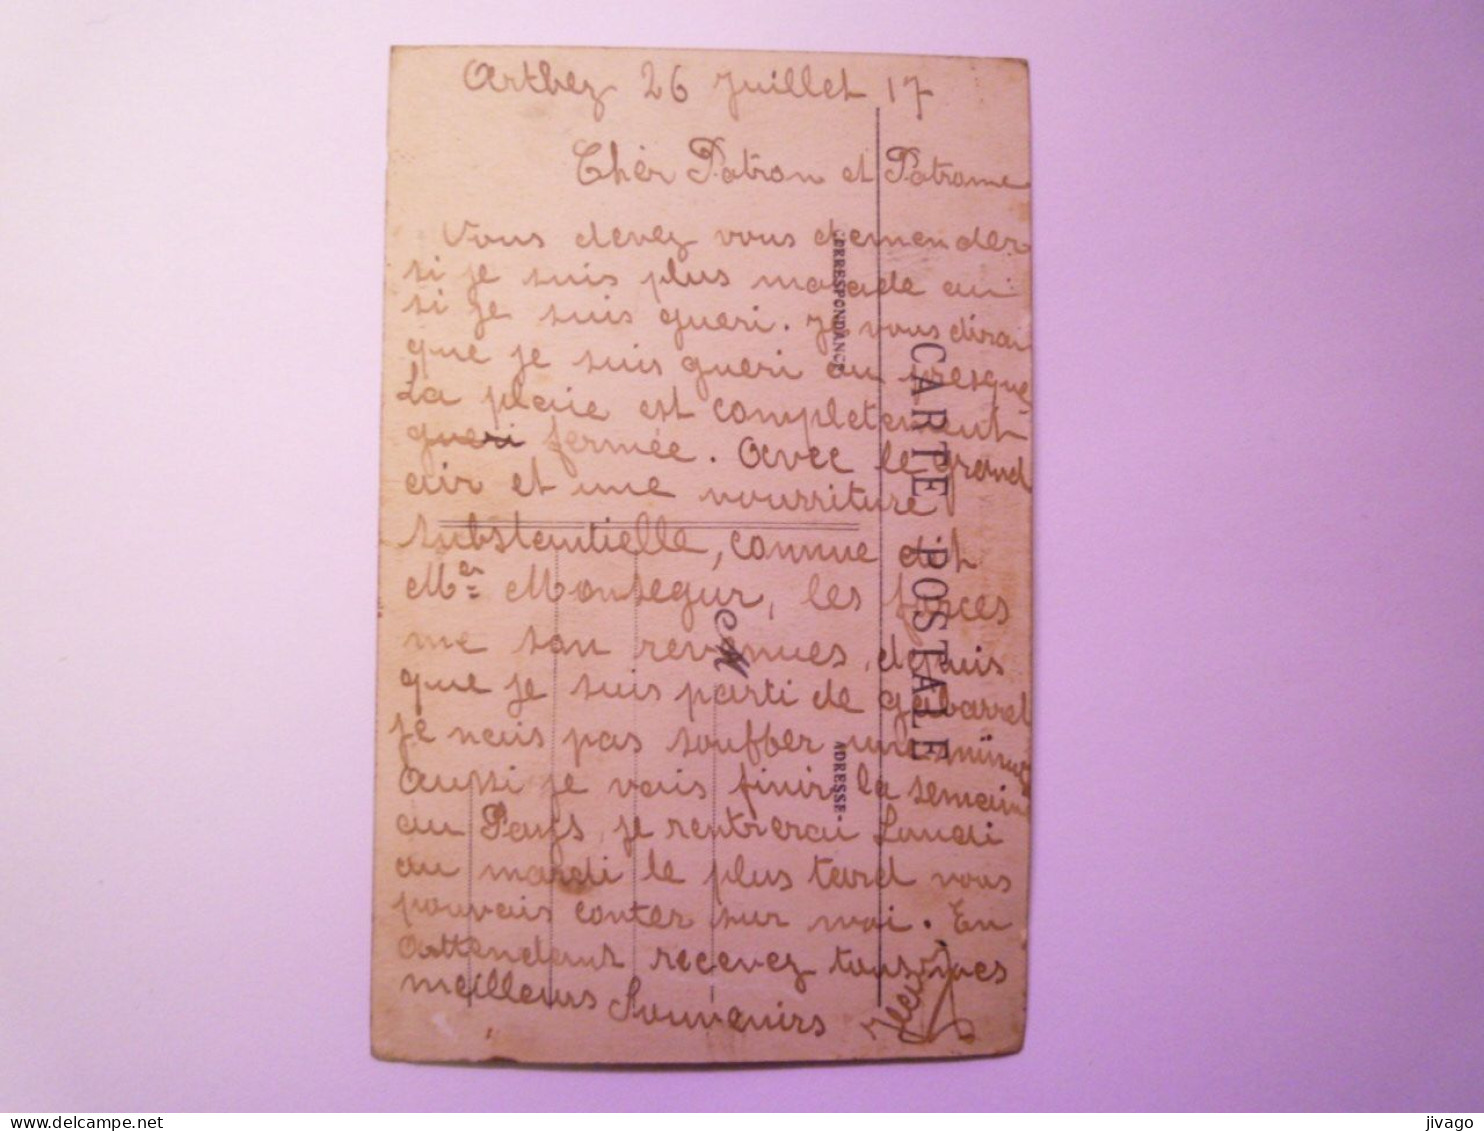 Arthez 26 Juillet 17
Chèr Patron et Patronne
Vous devez vous demender
si je suis plus malade ou
si je suis gueri. Je vous dirai
que je suis gueri ou presque
La plaie est completement
gueri fermée. Avec le grand
air et une nourriture
substentielle, comme dit
Mer Monsegur, les forces
me son revenues, depuis
que je suis parti de Gabarret
je nais pas souffer une minute
aussi je vais finir la semaine
au Pays, je rentrerai Lundi
au mardi le plus tard vous
pouvais conter sur moi. En
attendent recevez tous mes
meilleurs Souvenirs
CORRESPONDANCE
CARTE POSTALE
ADRESSE
delcampe.net
jivago